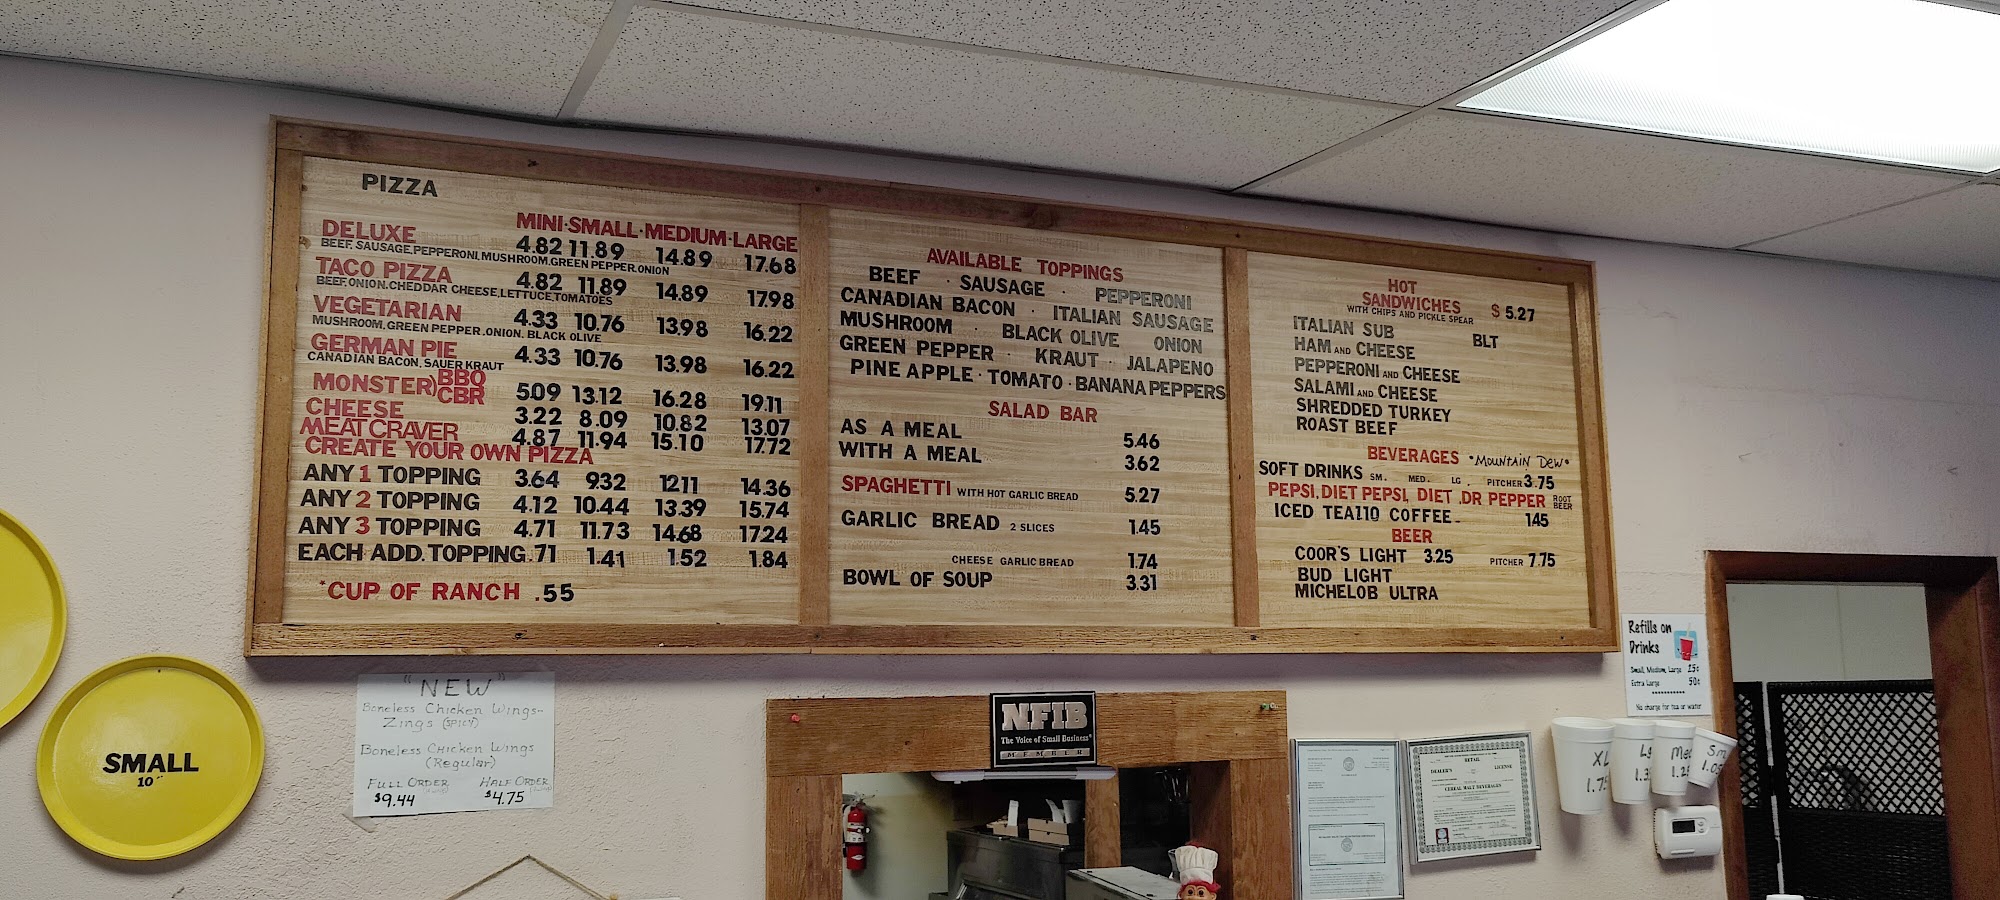 PIZZA
MINI·SMALL·MEDIUM·LARGE
DELUXE 4.82 11.89 14.89 17.68
BEEF, SAUSAGE, PEPPERONI, MUSHROOM, GREEN PEPPER, ONION
TACO PIZZA 4.82 11.89 14.89 17.98
BEEF, ONION, CHEDDAR CHEESE, LETTUCE, TOMATOES
VEGETARIAN 4.33 10.76 13.98 16.22
MUSHROOM, GREEN PEPPER, ONION, BLACK OLIVE
GERMAN PIE 4.33 10.76 13.98 16.22
CANADIAN BACON, SAUER KRAUT
MONSTER) BBQ CBR 5.09 13.12 16.28 19.11
CHEESE 3.22 8.09 10.82 13.07
MEAT CRAVER 4.87 11.94 15.10 17.72
CREATE YOUR OWN PIZZA
ANY 1 TOPPING 3.64 9.32 12.11 14.36
ANY 2 TOPPING 4.12 10.44 13.39 15.74
ANY 3 TOPPING 4.71 11.73 14.68 17.24
EACH ADD. TOPPING .71 1.41 1.52 1.84
*CUP OF RANCH .55
AVAILABLE TOPPINGS
BEEF · SAUSAGE · PEPPERONI
CANADIAN BACON · ITALIAN SAUSAGE
MUSHROOM · BLACK OLIVE ONION
GREEN PEPPER · KRAUT · JALAPENO
PINEAPPLE · TOMATO · BANANA PEPPERS
SALAD BAR
AS A MEAL 5.46
WITH A MEAL 3.62
SPAGHETTI WITH HOT GARLIC BREAD 5.27
GARLIC BREAD 2 SLICES 1.45
CHEESE GARLIC BREAD 1.74
BOWL OF SOUP 3.31
HOT
SANDWICHES $5.27
WITH CHIPS AND PICKLE SPEAR
ITALIAN SUB BLT
HAM AND CHEESE
PEPPERONI AND CHEESE
SALAMI AND CHEESE
SHREDDED TURKEY
ROAST BEEF
BEVERAGES *MOUNTAIN DEW*
SOFT DRINKS SM. MED. LG. PITCHER 3.75
PEPSI, DIET PEPSI, DIET, DR PEPPER ROOT BEER
ICED TEA 1.10 COFFEE- 1.45
BEER
COOR'S LIGHT 3.25 PITCHER 7.75
BUD LIGHT
MICHELOB ULTRA
SMALL
10"
"NEW"
Boneless Chicken Wings-
Zings (SPICY)
Boneless Chicken Wings
(Regular)
FULL ORDER HALF ORDER
$9.44 $4.75
NFIB
The Voice of Small Business
MEMBER
Refills on
Drinks
Small, Medium, Large 25¢
Extra Large 50¢
No charge for tea or water
RETAIL
DEALER'S LICENSE
CEREAL MALT BEVERAGES
XL
Lg
Med
Sm
1.05